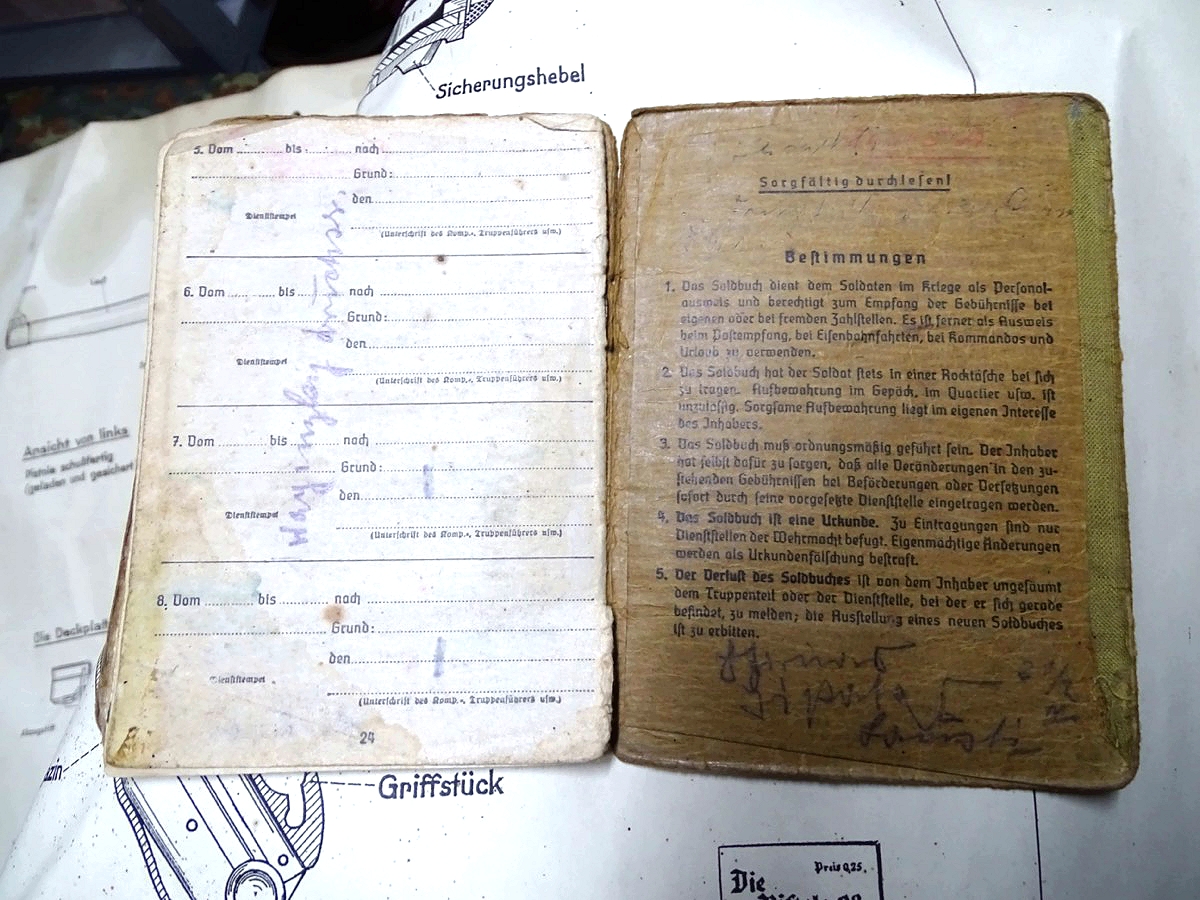 Sicherungshebel
5. Vom bis nach
Grund:
den
Dienststempel
(Unterschrift des Komp.-, Truppenführers usw.)
6. Vom bis nach
Grund:
den
Dienststempel
(Unterschrift des Komp.-, Truppenführers usw.)
7. Vom bis nach
Grund:
den
Dienststempel
(Unterschrift des Komp.-, Truppenführers usw.)
8. Vom bis nach
Grund:
den
Dienststempel
(Unterschrift des Komp.-, Truppenführers usw.)
24
Sorgfältig durchlesen!
Bestimmungen
1. Das Soldbuch dient dem Soldaten im Kriege als Personal-
ausweis und berechtigt zum Empfang der Gebührnisse bei
eigenen oder bei fremden Zahlstellen. Es ist ferner als Ausweis
beim Postempfang, bei Eisenbahnfahrten, bei Kommandos und
Urlaub zu verwenden.
2. Das Soldbuch hat der Soldat stets in einer Rocktasche bei sich
zu tragen. Aufbewahrung im Gepäck, im Quartier usw. ist
unzulässig. Sorgsame Aufbewahrung liegt im eigenen Interesse
des Inhabers.
3. Das Soldbuch muß ordnungsmäßig geführt sein. Der Inhaber
hat selbst dafür zu sorgen, daß alle Veränderungen in den zu-
stehenden Gebührnissen bei Beförderungen oder Versetzungen
sofort durch seine vorgesetzte Dienststelle eingetragen werden.
4. Das Soldbuch ist eine Urkunde. Zu Eintragungen sind nur
Dienststellen der Wehrmacht befugt. Eigenmächtige Änderungen
werden als Urkundenfälschung bestraft.
5. Der Verlust des Soldbuches ist von dem Inhaber ungesäumt
dem Truppenteil oder der Dienststelle, bei der er sich gerade
befindet, zu melden; die Ausstellung eines neuen Soldbuches
ist zu erbitten.
Ansicht von links
Pistole schußfertig
(geladen und gesichert
Die Deckplatte
Griffstück
Preis 0,25.
Die